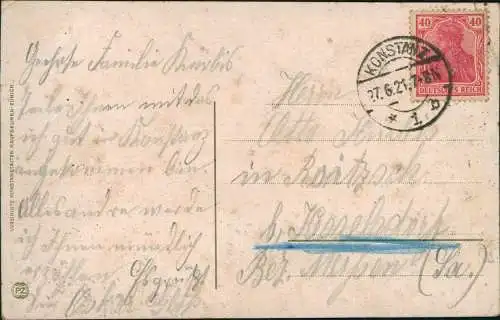 Geehrte Familie Kürbis
teile Ihnen mit das
ich gut in Konstanz
angekommen bin.
Alles andre werde
ich Ihnen mündlich
erzählen. Es grüßt
Herrn
Otto
in
b.
Bez. Meißen (Sa.)
KONSTANZ
27.6.21.
* 1 b
40 40
DEUTSCHES REICH
VEREINIGTE KUNSTANSTALTEN KAUFBEUREN-ZÜRICH.